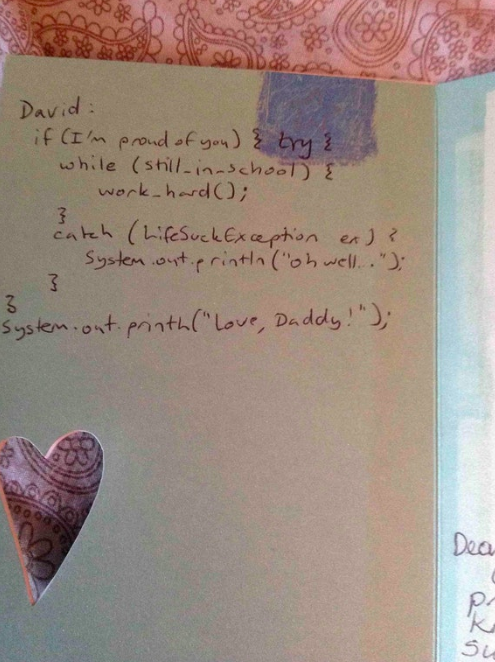 David:
if (I'm proud of you) { try {
while (still_in_school) {
work_hard();
}
catch (LifeSuckException ex) {
System.out.println("oh well...");
}
}
System.out.println("Love, Daddy!");